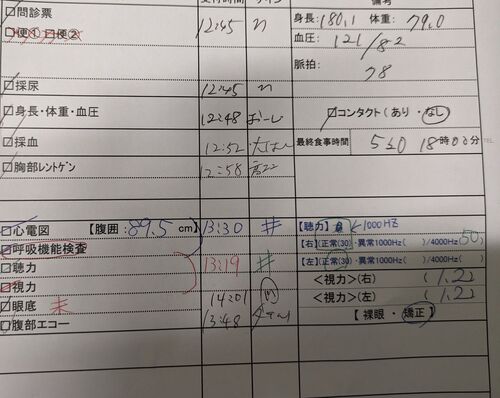 受付時間 サイン 備考
□問診票 12:45 n 身長:180.1 体重:79.0
□便① □便② 血圧:121/82
脈拍: 78
□採尿 12:45 n
□身長・体重・血圧 12:48 □コンタクト(あり・なし)
□採血 12:52 最終食事時間 18時00分
□胸部レントゲン 12:58
□心電図 【腹囲:89.5cm】 13:30 井 【聴力】 1000HZ
□呼吸機能検査 【右】(正常(30)・異常1000Hz( )/4000Hz(50)
□聴力 13:19 井 【左】(正常(30)・異常1000Hz( )/4000Hz( )
□視力 <視力>(右) (1.2)
□眼底 14:01 <視力>(左) (1.2)
□腹部エコー 13:48 【 裸眼 ・ 矯正 】